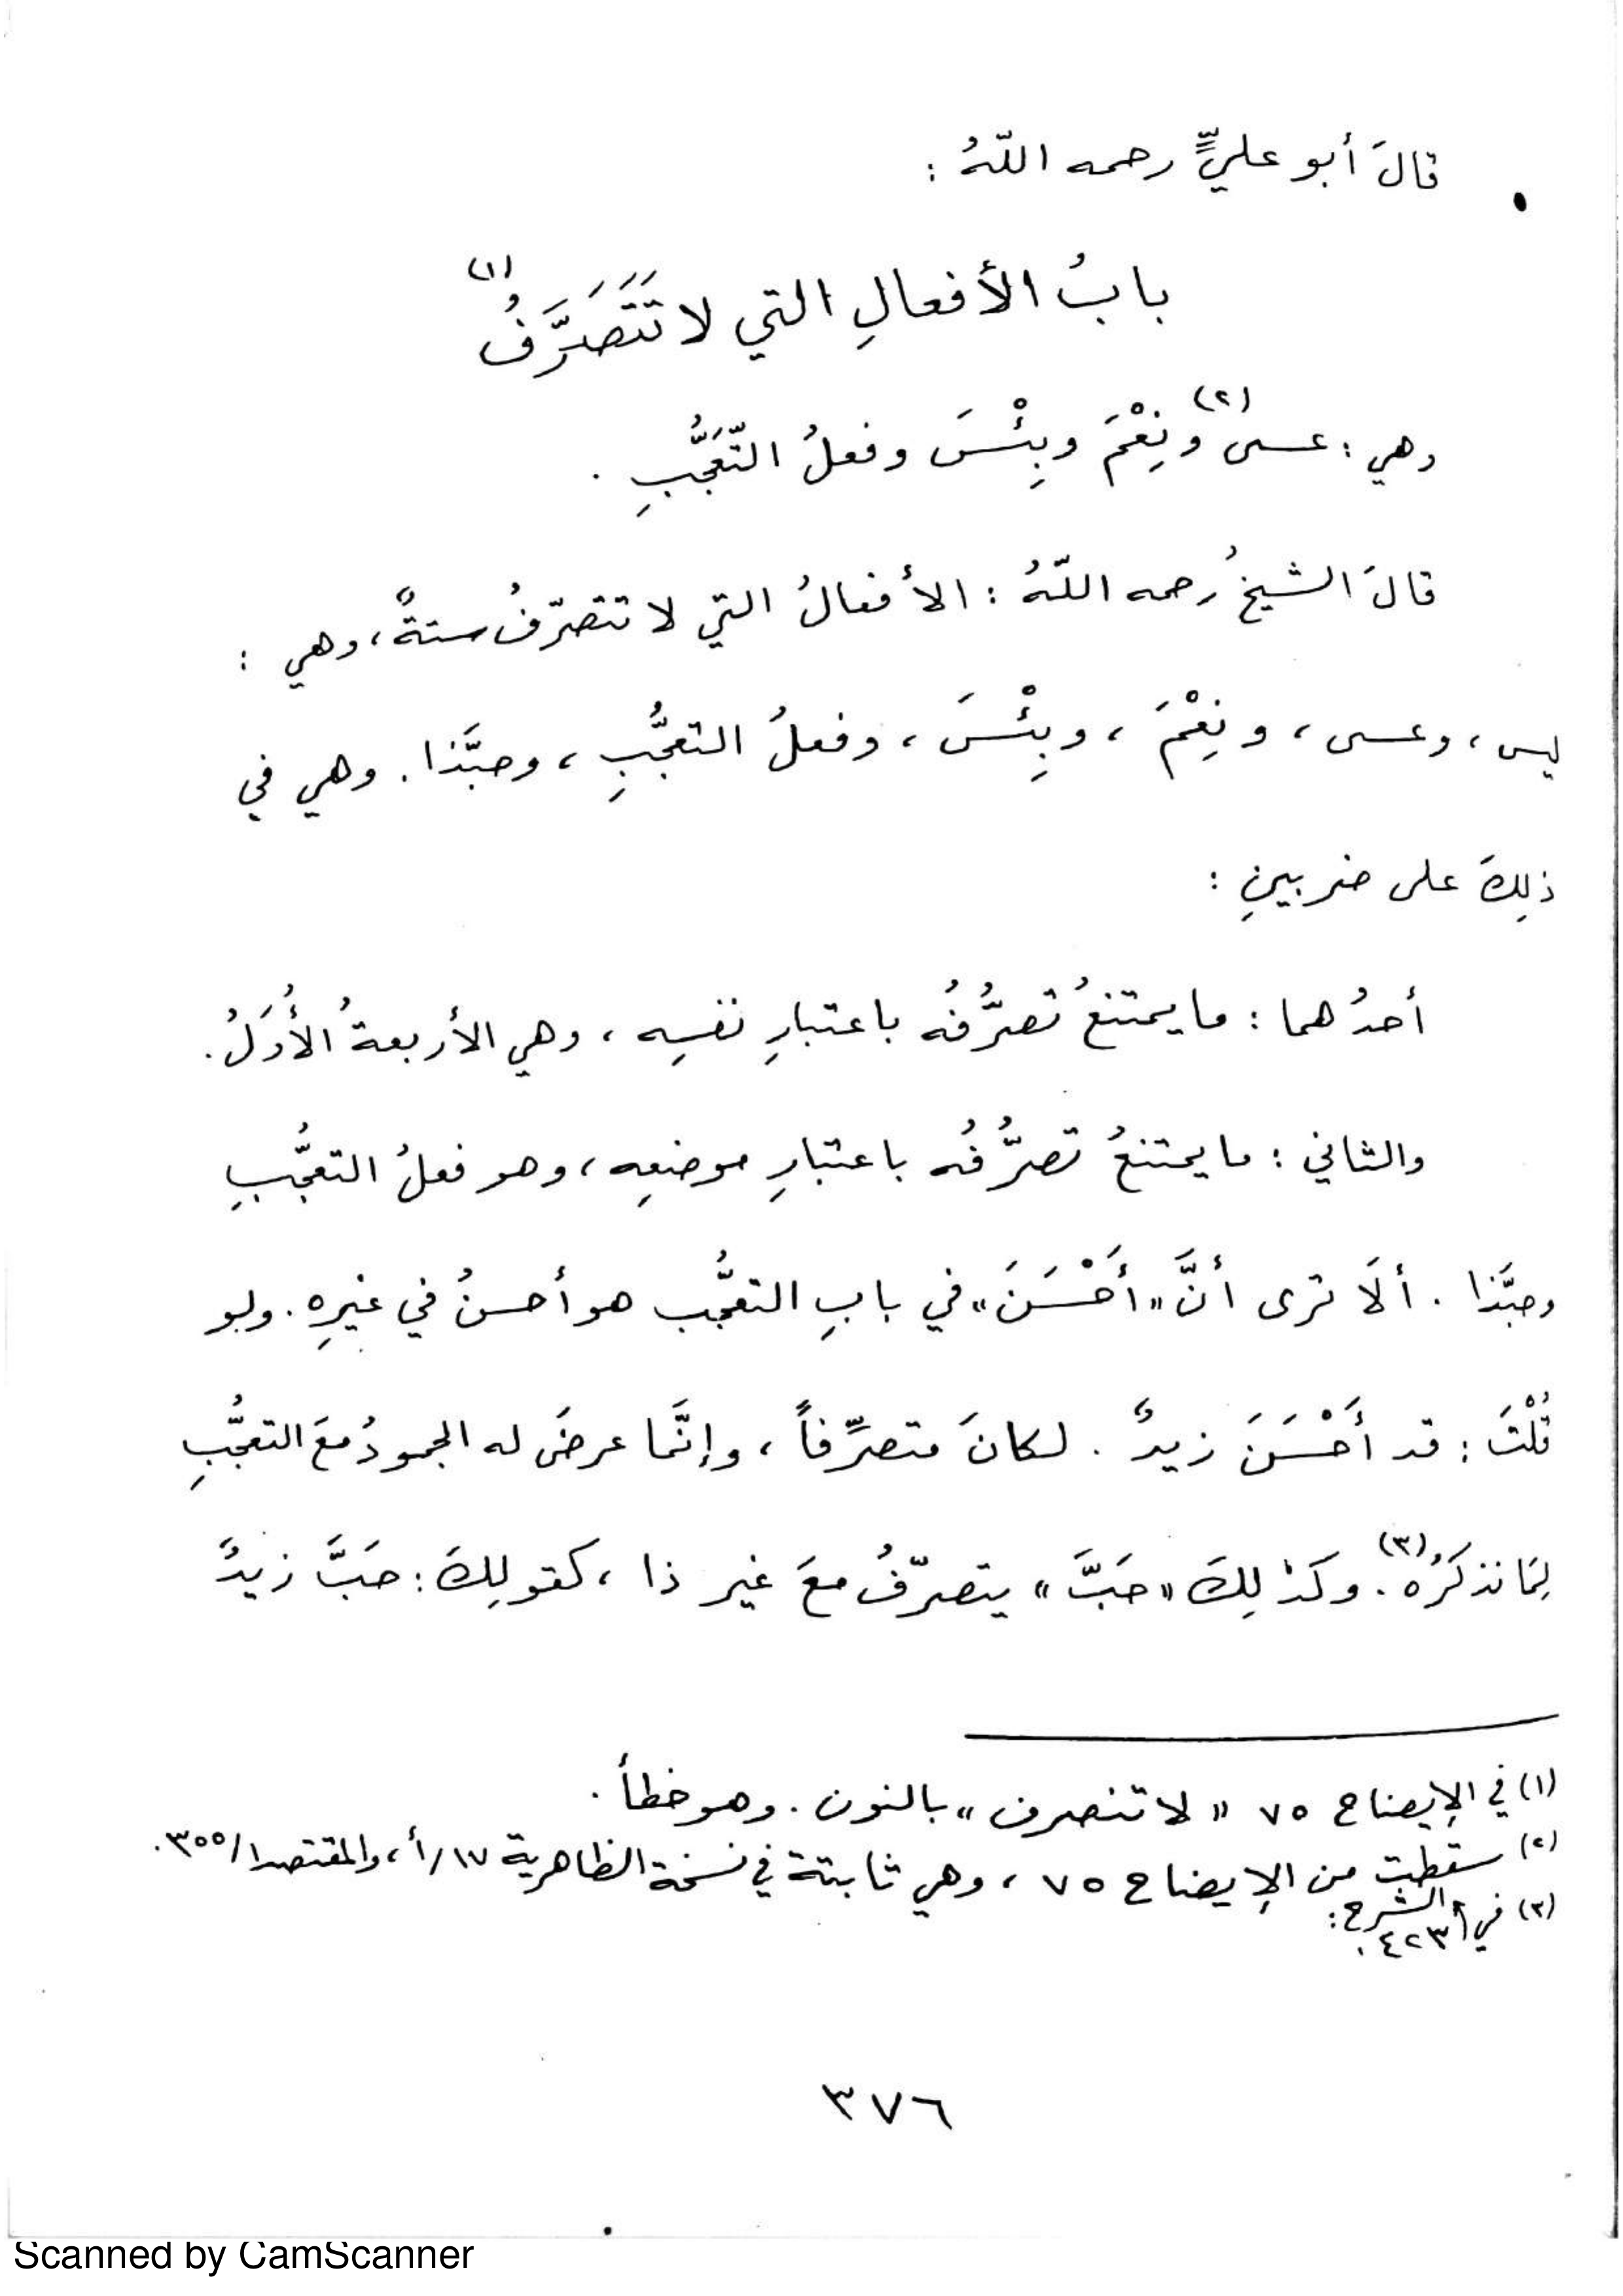 قالَ أبو عليٍّ رحمه اللّهُ :
بابُ الأفعالِ التي لا تَتَصَرَّفُ (١)
وهي : عسى (٢) ونِعْمَ وبِئْسَ وفعلُ التَّعَجُّبِ .
قالَ الشيخُ رحمه اللّهُ : الأفعالُ التي لا تتصرّفُ ستةٌ ، وهي :
ليس ، وعسى ، ونِعْمَ ، وبِئْسَ ، وفعلُ التعجُّبِ ، وحبَّذا . وهي في
ذلِكَ على ضربينِ :
أحدُهما : ما يمتنعُ تصرُّفُه باعتبارِ نفسِه ، وهي الأربعةُ الأُوَلُ .
والثاني : ما يمتنعُ تصرُّفُه باعتبارِ موضعِه ، وهو فعلُ التعجُّبِ
وحبَّذا . ألَا ترى أنَّ « أَحْسَنَ » في بابِ التعجُّب هو أحسنُ في غيرِه . ولو
قُلْتَ : قد أَحْسَنَ زيدٌ . لكانَ متصرِّفاً ، وإنَّما عرضَ له الجمودُ معَ التعجُّبِ
لِمَا نذكرُه (٣) . وكذلِكَ « حَبَّ » يتصرّفُ معَ غير ذا ، كقولِكَ : حَبَّ زيدٌ
(١) في الإيضاح ٧٥ « لا تنصرف » بالنون . وهو خطأ .
(٢) سقطت من الإيضاح ٧٥ ، وهي ثابتة في نسخة الظاهرية ١٧/أ ، والمقتصد ١/٣٥٥ .
(٣) في الشرح :
٤٢٣ .
٣٧٦
Scanned by CamScanner